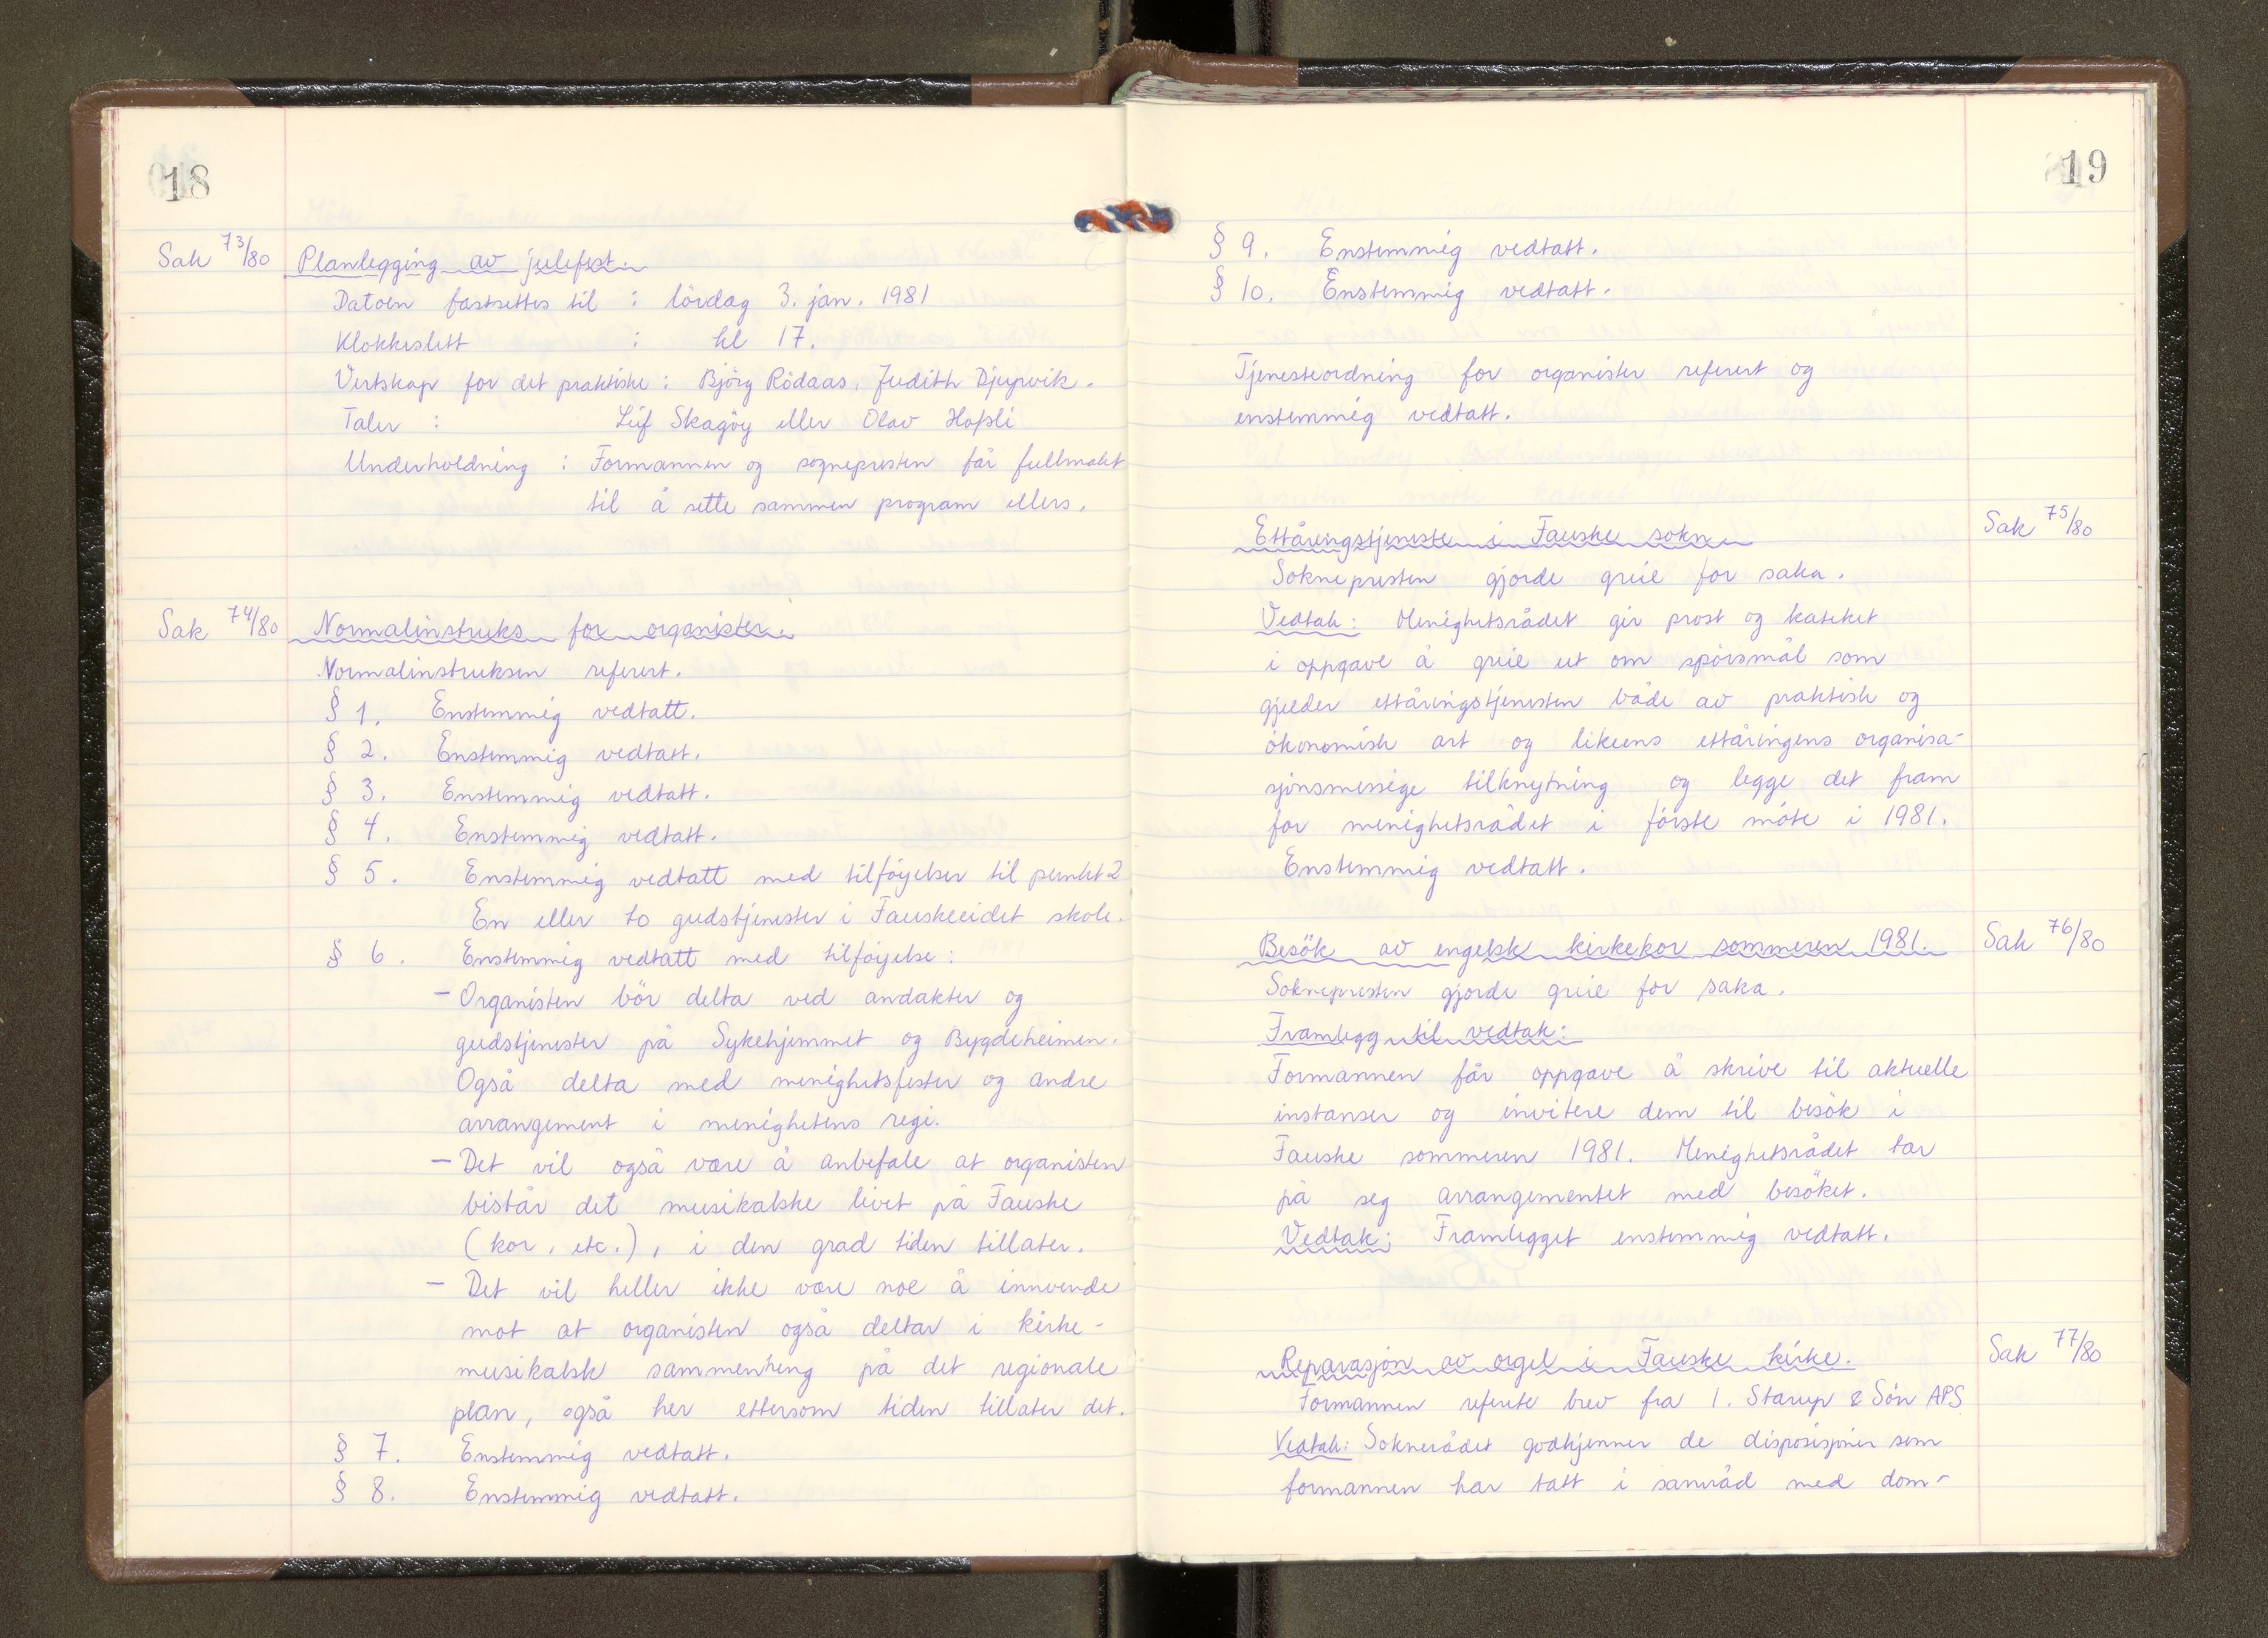 18
Sak 73/80 Planlegging av julefest.
Datoen fastsettes til : lördag 3. jan. 1981
Klokkeslett : kl 17.
Vertskap for det praktiske : Björg Rödaas, Judith Djupvik.
Taler : Leif Skagöy eller Olav Hafsli
Underholdning : Formannen og sognepresten får fullmakt
til å sette sammen program ellers.
Sak 74/80 Normalinstruks for organister.
Normalinstruksen referert.
§ 1. Enstemmig vedtatt.
§ 2. Enstemmig vedtatt.
§ 3. Enstemmig vedtatt.
§ 4. Enstemmig vedtatt.
§ 5. Enstemmig vedtatt med tilföyelser til punkt 2
En eller to gudstjenester i Fauskeeidet skole.
§ 6. Enstemmig vedtatt med tilföyelse :
- Organisten bör delta ved andakter og
gudstjenester på Sykehjemmet og Bygdeheimen.
Også delta med menighetsfester og andre
arrangement i menighetens regi.
- Det vil også være å anbefale at organisten
bistår det musikalske livet på Fauske
(kor, etc.), i den grad tiden tillater.
- Det vil heller ikke være noe å innvende
mot at organisten også deltar i kirke-
musikalsk sammenheng på det regionale
plan, også her ettersom tiden tillater det.
§ 7. Enstemmig vedtatt.
§ 8. Enstemmig vedtatt.
19
§ 9. Enstemmig vedtatt.
§ 10. Enstemmig vedtatt.
Tjenesteordning for organister referert og
enstemmig vedtatt.
Ettåringstjeneste i Fauske sokn Sak 75/80
Soknepresten gjorde greie for saka.
Vedtak : Menighetsrådet gir prost og kateket
i oppgave å greie ut om spörsmål som
gjelder ettåringstjenesten både av praktisk og
ökonomisk art og likeens ettåringens organisa-
sjonsmessige tilknytning og legge det fram
for menighetsrådet i förste möte i 1981.
Enstemmig vedtatt.
Besök av engelsk kirkekor sommeren 1981. Sak 76/80
Soknepresten gjorde greie for saka.
Framlegg til vedtak :
Formannen får oppgave å skrive til aktuelle
instanser og invitere dem til besök i
Fauske sommeren 1981. Menighetsrådet tar
på seg arrangementet med besöket.
Vedtak : Framlegget enstemmig vedtatt.
Reparasjon av orgel i Fauske kirke. Sak 77/80
Formannen referete brev fra I. Starup & Sön APS
Vedtak : Soknerådet godkjenner de disposisjoner som
formannen har tatt i samråd med dom-